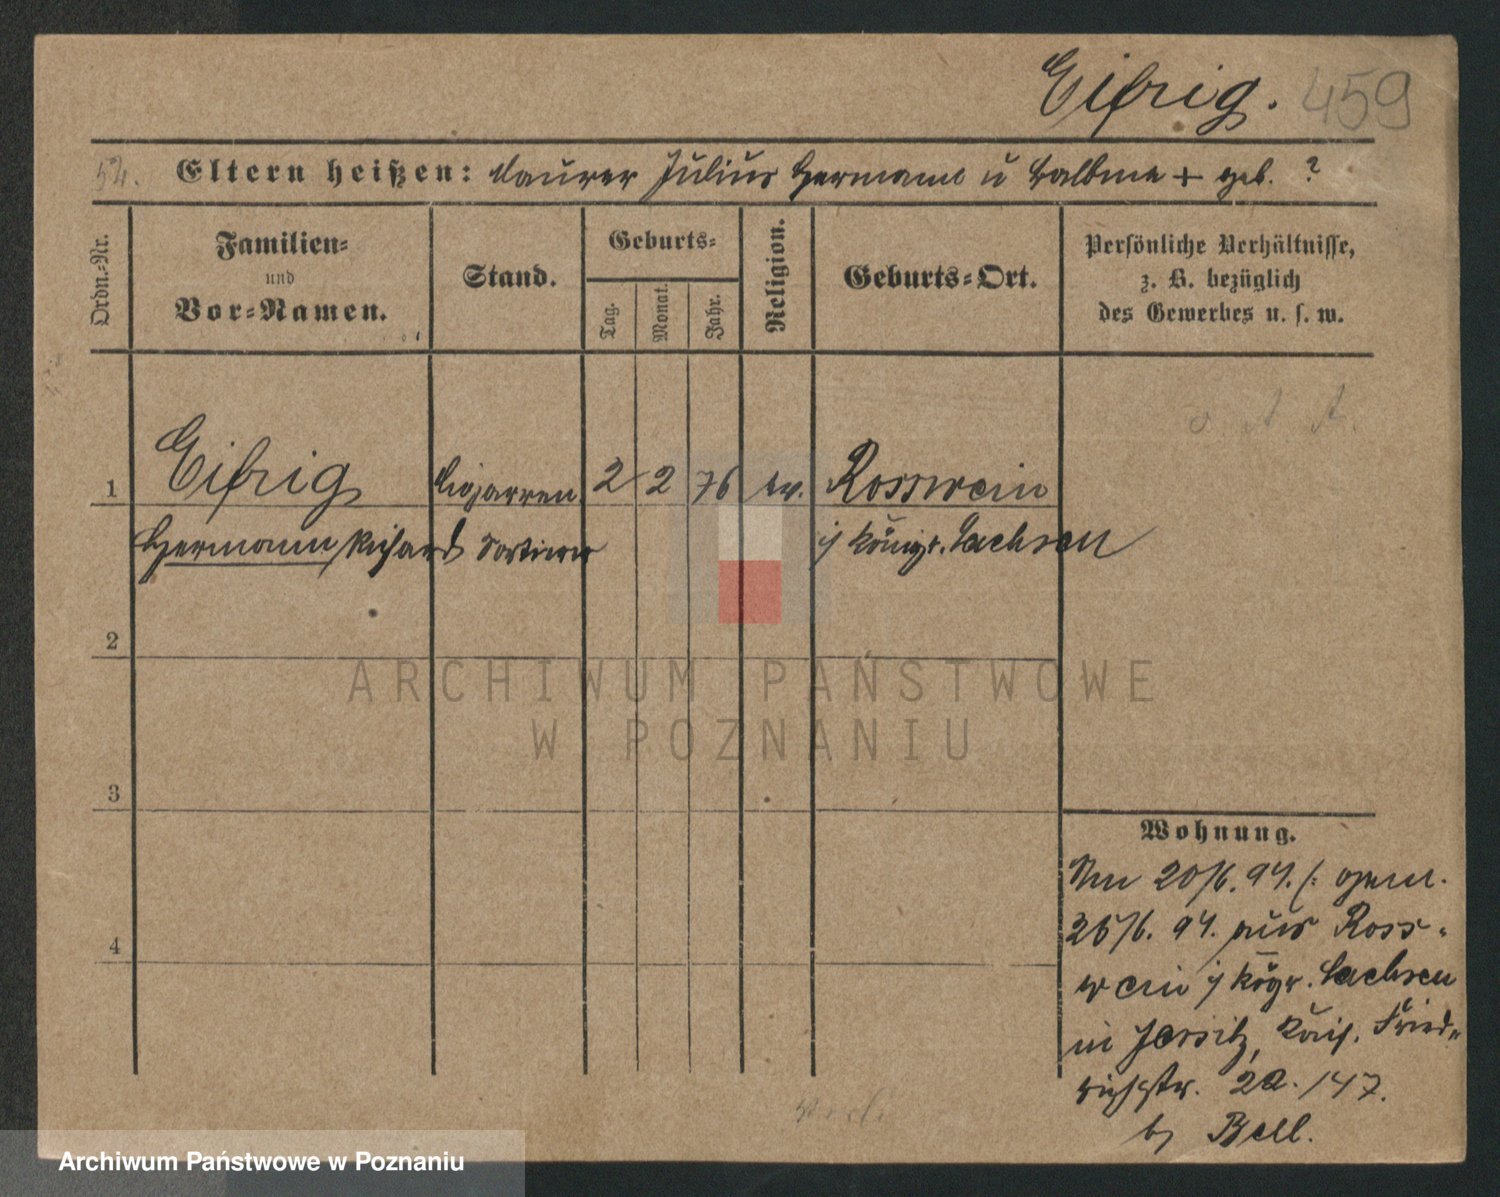 Eifrig. 459
52. Eltern heißen: Maurer Julius Hermann u Balbina + geb. ?
Ordn.-Nr.
Familien-
und
Vor-Namen.
Stand.
Geburts-
Tag.
Monat.
Jahr.
Religion.
Geburts-Ort.
Persönliche Verhältnisse,
z. B. bezüglich
des Gewerbes u. s. w.
1 Eifrig Cigarren 2 2 76 ev. Rosswein
Hermann Richard Sortierer i/ Königr. Sachsen
2
3
4
Wohnung.
Am 20/6. 94. /: gem.
26/6. 94. aus Ross-
wein i/ Kögr. Sachsen
in Jersitz, Kais. Fried-
richstr. 22. /47.
b/ Bell.
ARCHIWUM PAŃSTWOWE
W POZNANIU
Archiwum Państwowe w Poznaniu